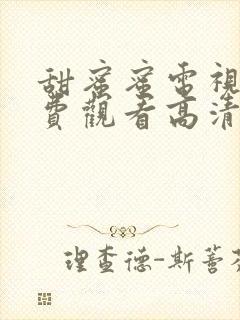 甜蜜蜜電視
費觀看高清
理查德-斯蓍芬